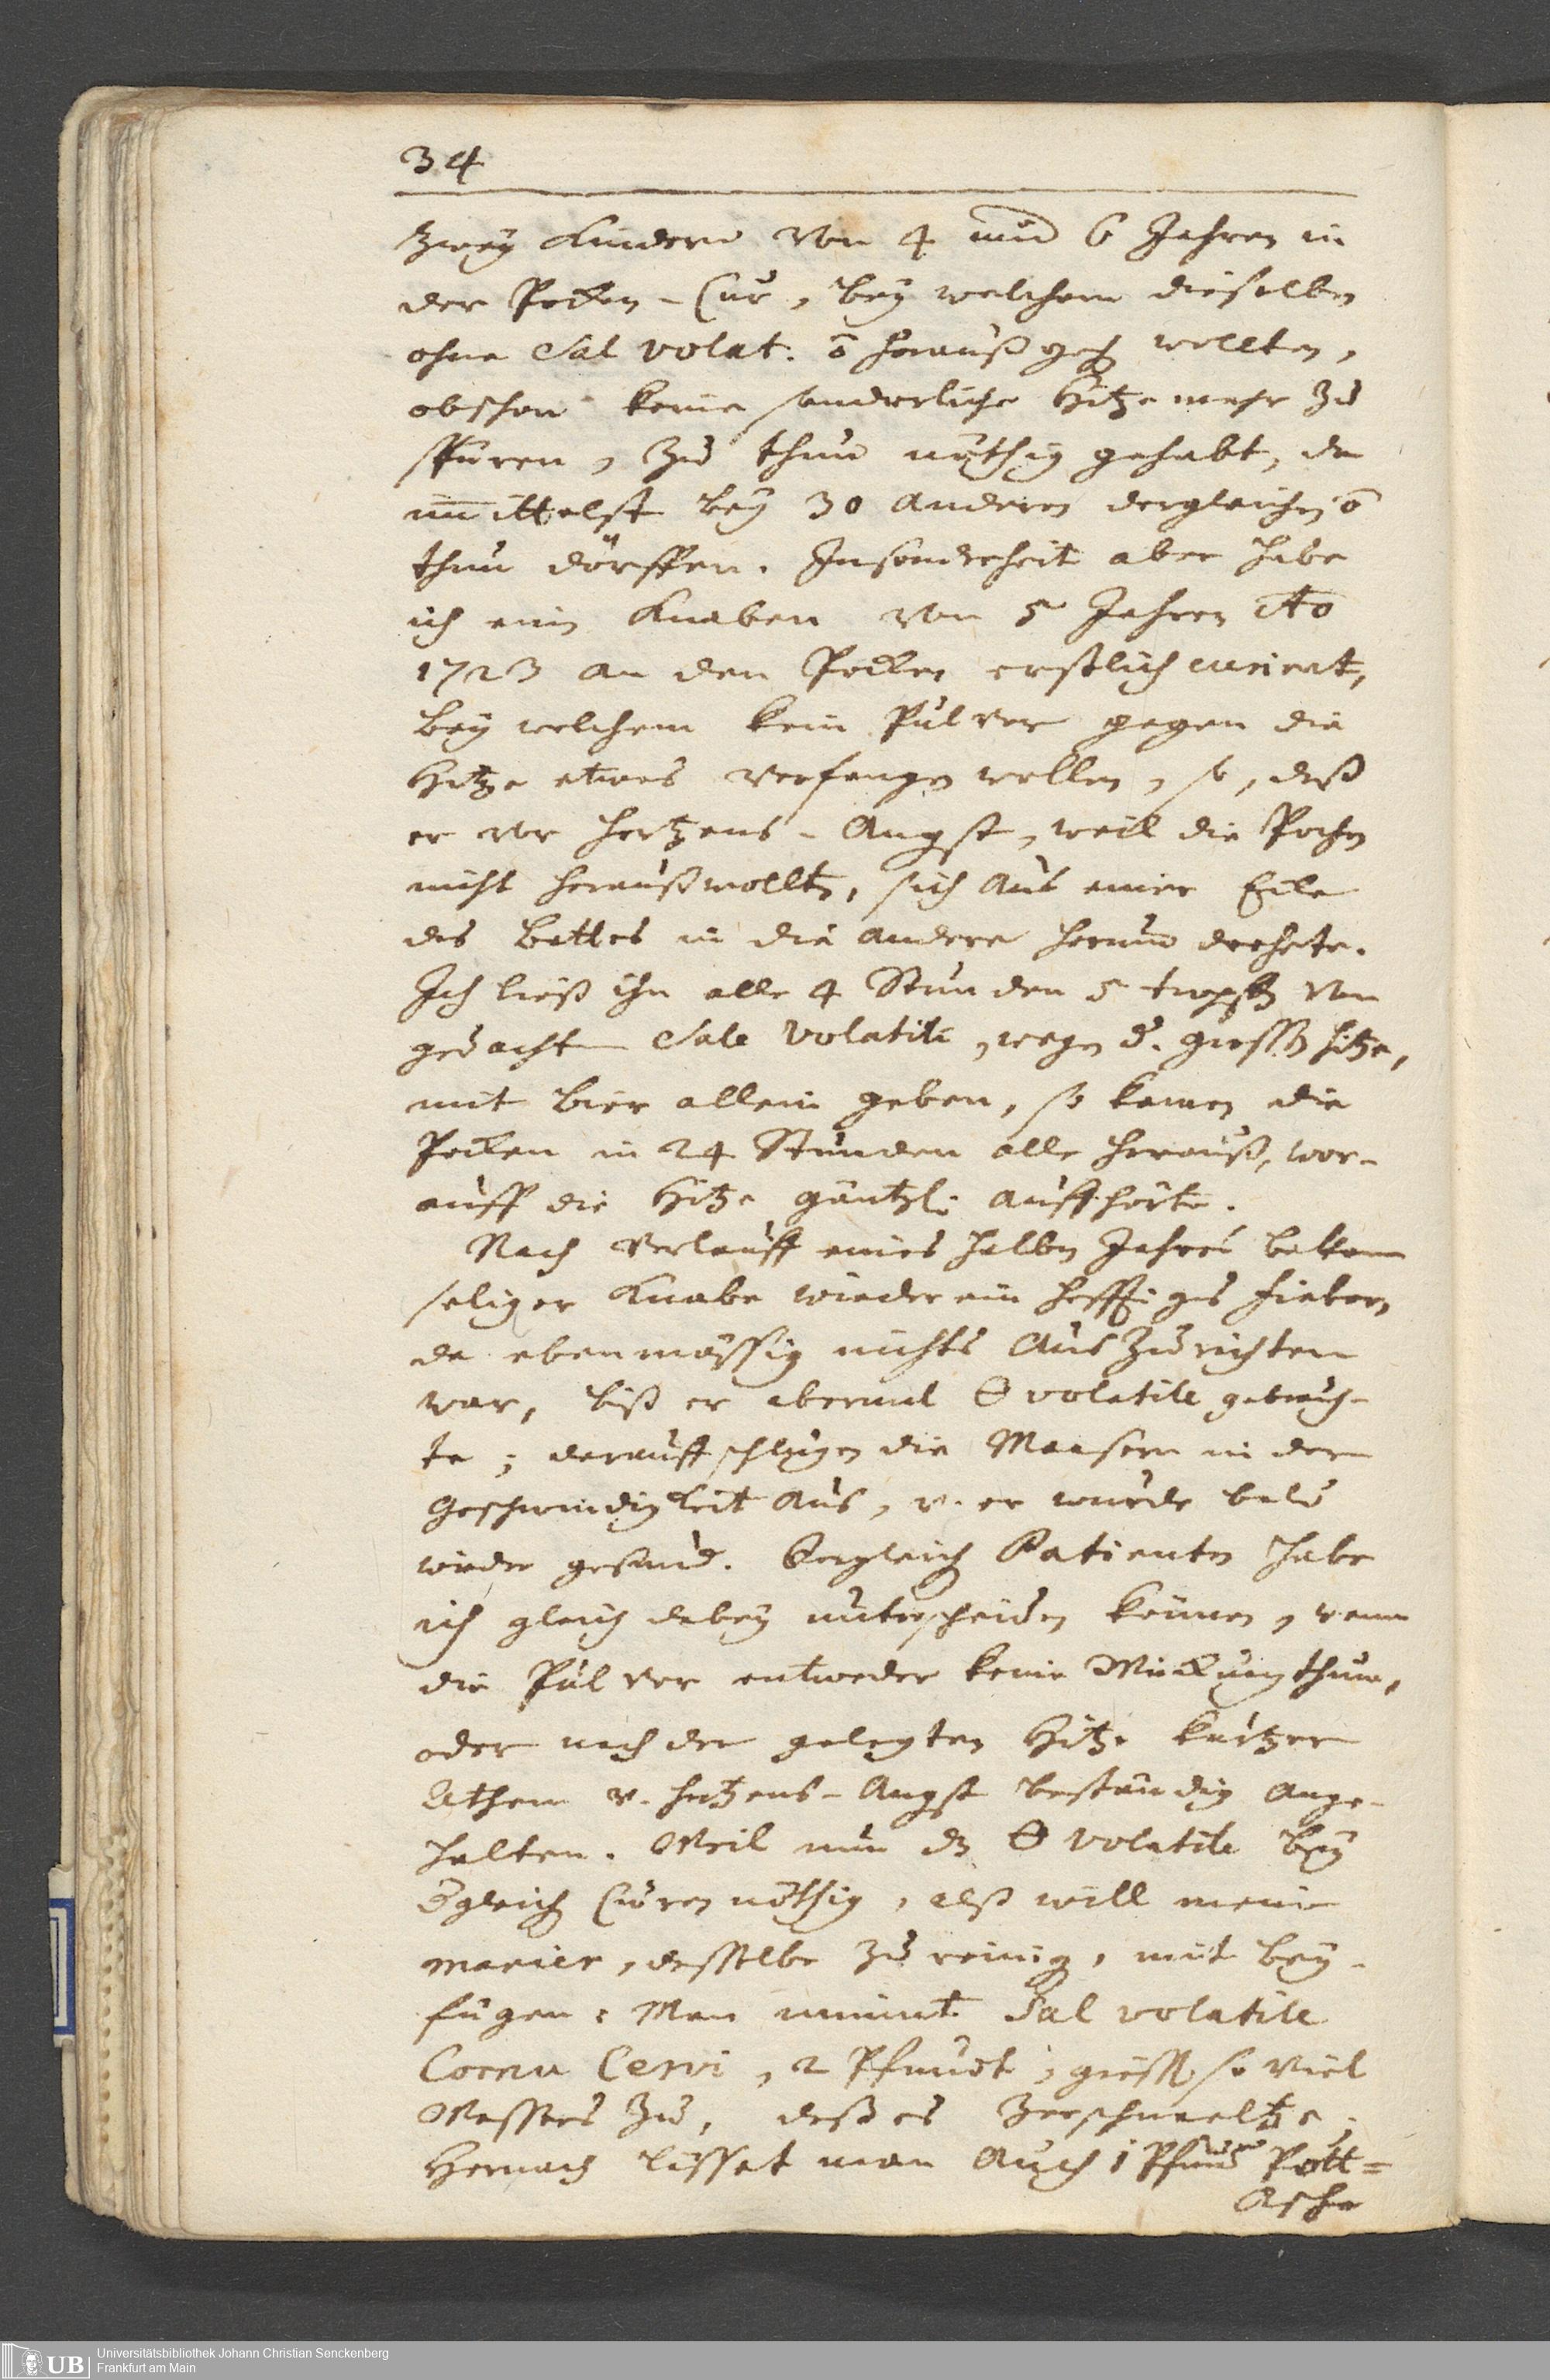 34
zwey Kindern von 4 und 6 Jahren in
der Pocken-Cur, bey welchem dieselben
ohne Sal volat. ō herauß geh wollten,
obschon keine sonderliche Hitze mehr zu
spüren, zu thun nöthig gehabt, da
im̄ittelst bey 30 anderen dergleichen ō
thun dörffen. Insonderheit aber habe
ich ein Knaben von 5 Jahren Ao
1723 an den Pocken erstlich curiert,
bey welchem kein Pulver gegen die
Hitze etwas verfangen wollen, so, daß
er vor Hertzens-Angst, weil die Pocken
nicht herauß wollten, sich aus einer Ecke
des Bettes in die andere herum drehete.
Ich ließ ihn alle 4 Stunden 5 tropffen von
gedachtem Sale volatili, wegen d. grossen Hitze,
mit Bier allein geben, so kamen die
Pocken in 24 Stunden alle herauß, wor-
auff die Hitze gäntzl: auffhörte.
Nach Verlauff eines halben Jahres bekam
seliger Knabe wieder ein hefftiges Fieber,
da ebenmässig nichts auszurichten
war, biß er abermal 🜔 volatile gebrauch-
te; darauff schlugen die Maasern in der
Geschwindigkeit aus, u. er wurde bald
wieder gesund. Dergleich Patienten habe
ich gleich dabey unterscheiden können, wenn
die Pulver entweder keine Würckung thun,
oder nach der gelegten Hitze kurtzer
Athem u. Hertzens-Angst beständig ange-
halten. Weil nun dz 🜔 volatile bey
dgleich Curen nöthig, alß will meine
manier, dasselbe zu reinig, mit bey-
fügen: Man nimmt Sal volatile
Cornu Cervi, 2 Pfundt, giesse so viel
Wassers zu, daß es zerschmeltze.
Hernach lässet man auch 1 Pfund Pott=
Asche
Universitätsbibliothek Johann Christian Senckenberg
UB Frankfurt am Main